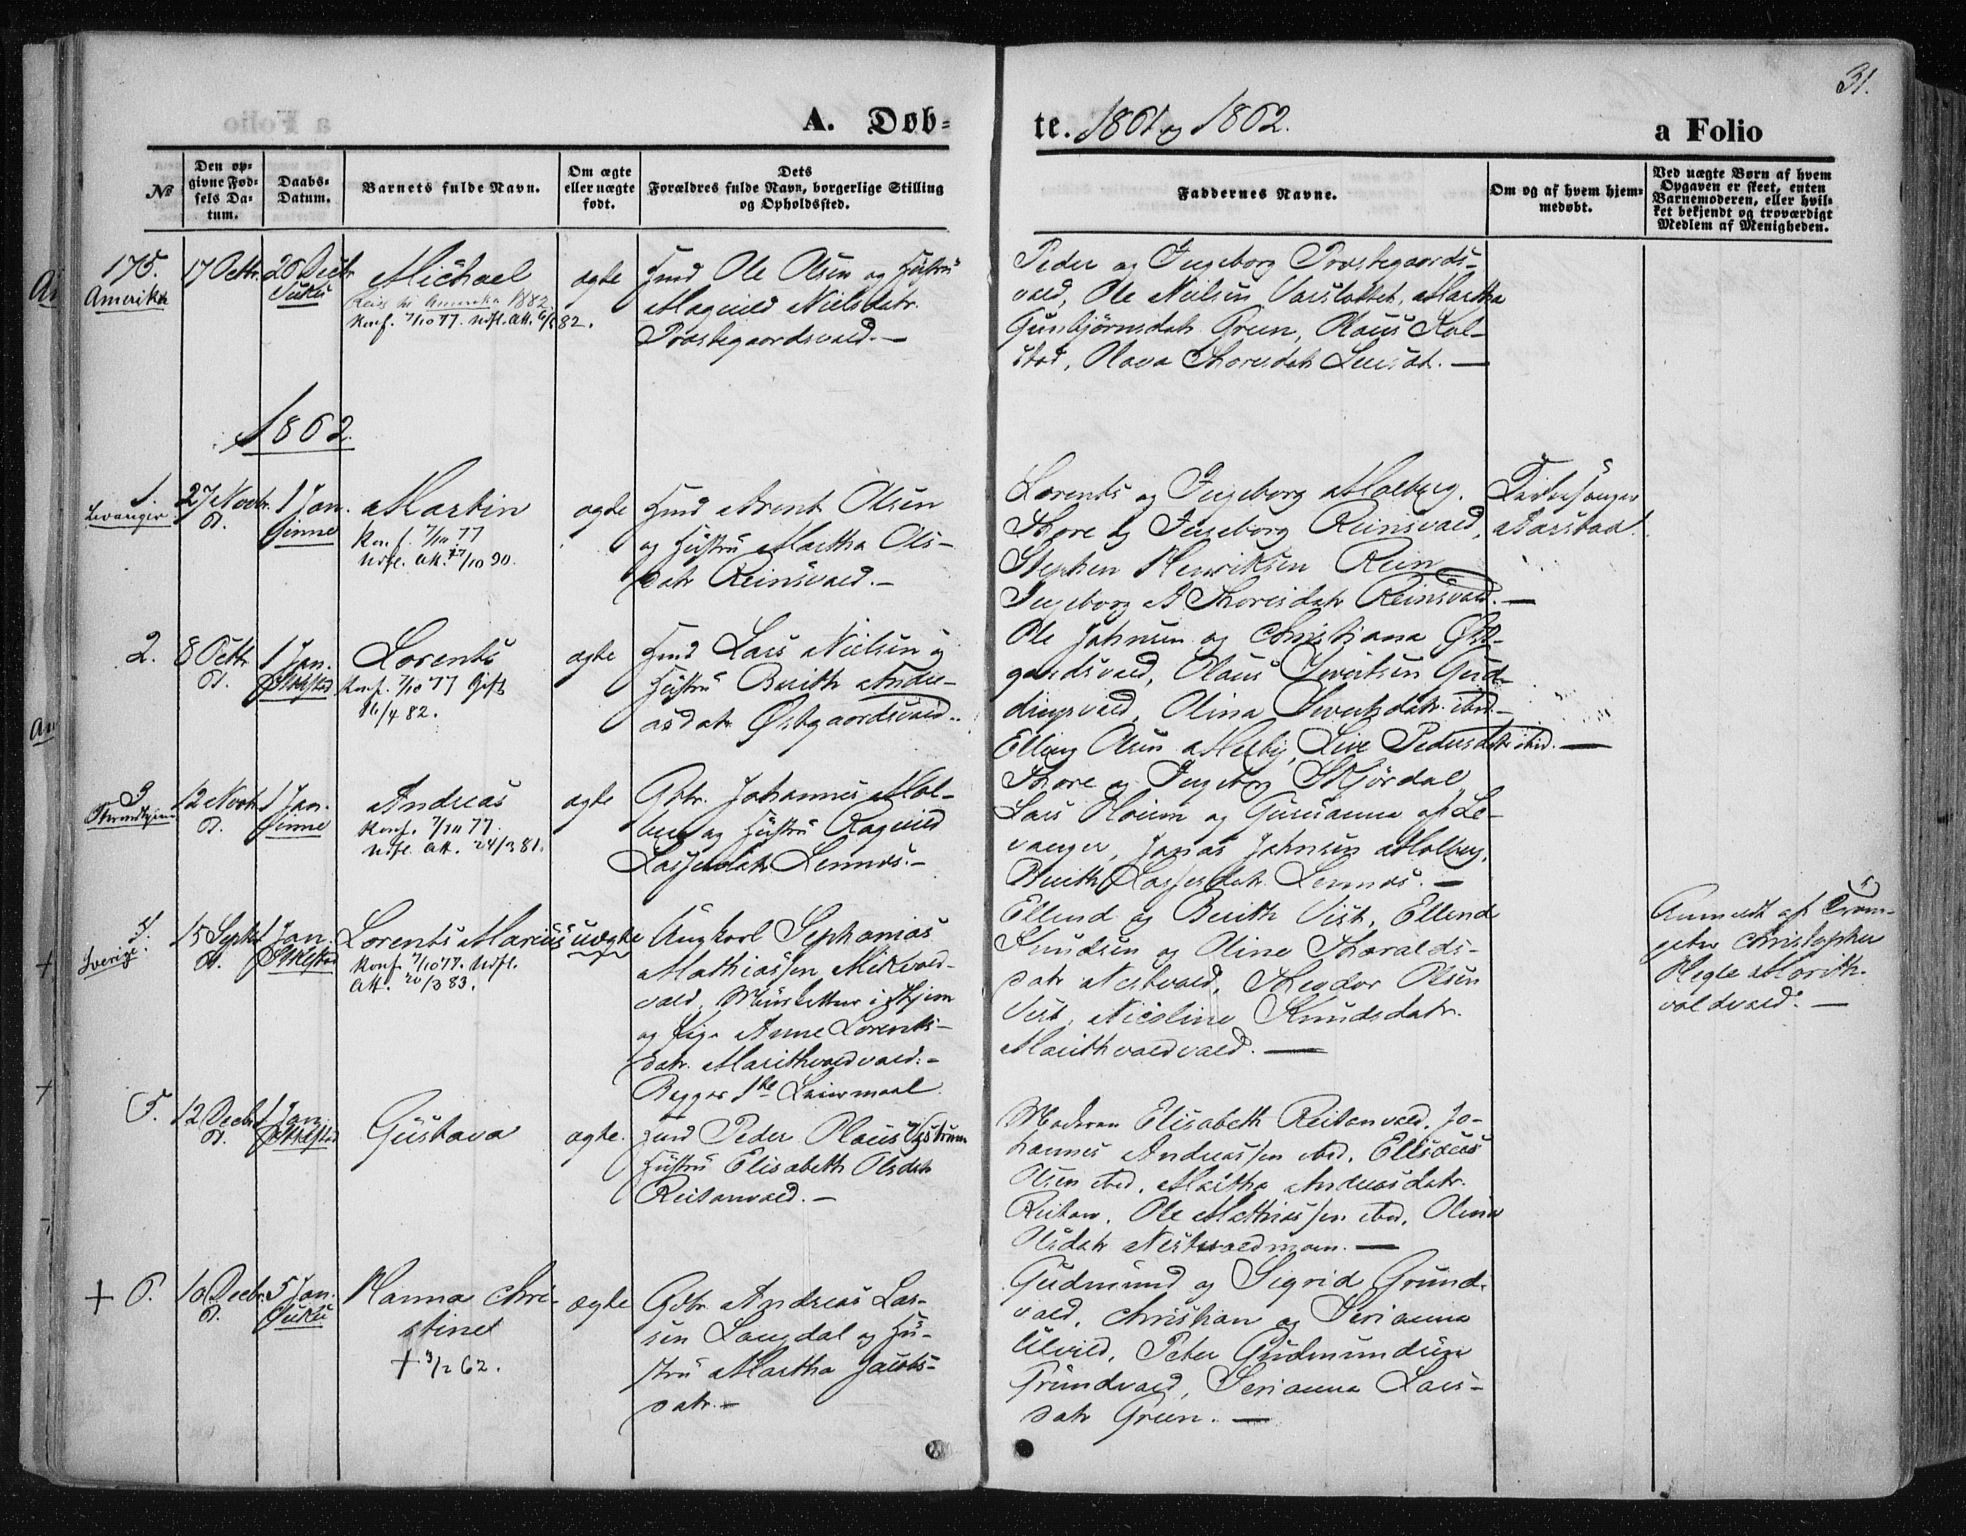 31.
A. Døb-
te. 1861 og 1862.
a Folio
№
Den op-
givne Fød-
sels Da-
tum.
Daabs-
Datum.
Barnets fulde Navn.
Om ægte
eller uægte
født.
Dets
Forældres fulde Navn, borgerlige Stilling
og Opholdssted.
Faddernes Navne.
Om og af hvem hjem-
medøbt.
Ved uægte Børn af hvem
Opgaven er skeet, enten
Barnemoderen, eller hvil-
ket bekjendt og troværdigt
Medlem af Menigheden.
175.
Amerika
17 Octbr.
26 Decbr.
Stiklestad
Michael
Reist til Amerika 1882
Konf. 7/10 77. Utfl. Att. 6/5 82.
ægte
Husmd Ole Olsen og Hustru
Magnild Nielsdatr
Prostegaardsvald.—
Peder og Ingeborg Prostegaards-
vald, Ole Nielsen Varslottet, Martha
Gunbjørnsdatr Green, Olaus Kol-
stad, Olava Thoresdatr Leirset.—
1862.
1.
Levanger
27 Novbr.
1 Jan.
Vinne
Martin
Konf. 7/10 77
Utfl. Att. 17/10 90.
ægte
Husmd Arent Olsen
og Hustru Martha Ols-
datr Reinsvald.—
Lorents og Ingeborg Molberg.
Thore og Ingeborg Reinsvald,
Stephen Henriksen Rein
Ingeborg A Thoresdatr Reinsvald.—
Kirkesanger
Aarstad.
2.
8 Octbr
1 Jan.
Stiklestad
Lorents
Konf. 7/10 77 Gift
16/4 82.
ægte
Husmd Lars Nielsen og
Hustru Berith Andre-
asdatr Østgaardsvald..
Ole Johnsen og Christiana Øst-
gaardsvald, Olaus Sivertsen Gud-
dingsvald, Olina Sivertsdatr ibd.
Elling Olsen Melby, Live Pedersdatr ibid.—
3
12 Novbr.
1 Jan.
Vinne
Andreas
Konf. 7/10 77.
Utfl. Att. 24/3 81.
ægte
Gbr. Johannes Mol-
berg og Hustru Ragnild
Lassesdatr Lennes.—
Thore og Ingeborg Stjørdal,
Lars Hoium og Gurianna af Le-
vanger, Jonas Johnsen Molberg,
Berith Lassesdatr Lennes.—
4.
Sverige
15 Septbr
1 Jan.
Stiklestad
Lorents Marius
Konf. 7/10 77. Utfl.
Att. 20/3 83.
uægte
Ungkarl Sephanias
Mathiassen Mikvold-
vald, Musketteer i Hjem
og Pige Anne Lorents-
datr. Marithvoldvald.—
Begges 1ste Leiermaal
Ellend og Berith Vist, Ellend
Knudsen og Oline Tharalds-
datr Nestvold, Theodor Olsen
Vist, Nicoline Knudsdatr.
Marithvoldvald.—
Anmeldt af Trom-
peter Christopher
Hegle Marith-
voldvald.—
5.
12 Decbr
1 Jan.
Stiklestad
Gustava
ægte.
Husmd Peder Olaus Vistrum
Hustru Elisabeth Olsdatr
Reitanvald.—
Moderen Elisabeth Reitanvald, Jo-
hannes Andreassen ibd, Elisæus
Olsen ibd, Martha Andreasdatr.
Reitan, Ole Mathiassen ibd, Olina
Olsdatr Nestvoldmoen.—
+ 6.
10 Decbr.
5 Jan.
Stiklestad
Hanna Chri-
stine
+ 3/2 62.
ægte
Gbr. Andreas Lar-
sen Langdal og Hu-
stru Martha Jacobs-
datr.—
Gudmund og Sigrid Grund-
vald, Christian og Serianna
Ulvild, Peter Gudmundsen
Grundvald, Serianna Lars-
datr Green.—